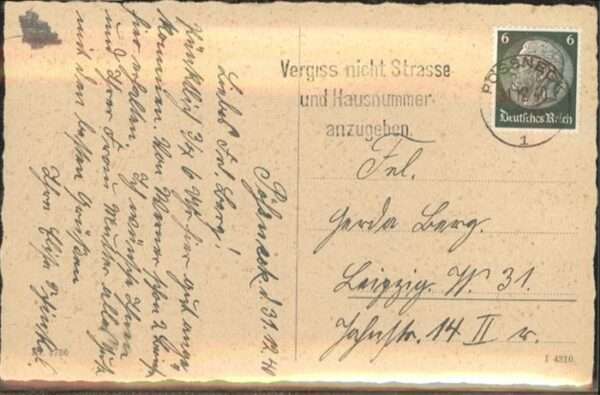 Pößneck, d. 31.12.40
Liebes Frl. Berg!
Pünktlich 3/4 6 Uhr hier gut ange-
kommen. Von Werner schon 2 Briefe
hier erhalten. Ich wünsche Ihnen
und Ihrer Frau Mutter alles Gute
und den besten Grüßen
Ihre Elise
Vergiss nicht Strasse
und Hausnummer
anzugeben.
PÖSSNECK
1
6 6
Deutsches Reich
Frl.
Gerda Berg.
Leipzig. W. 31.
Jahnstr. 14 II r.
I 4310